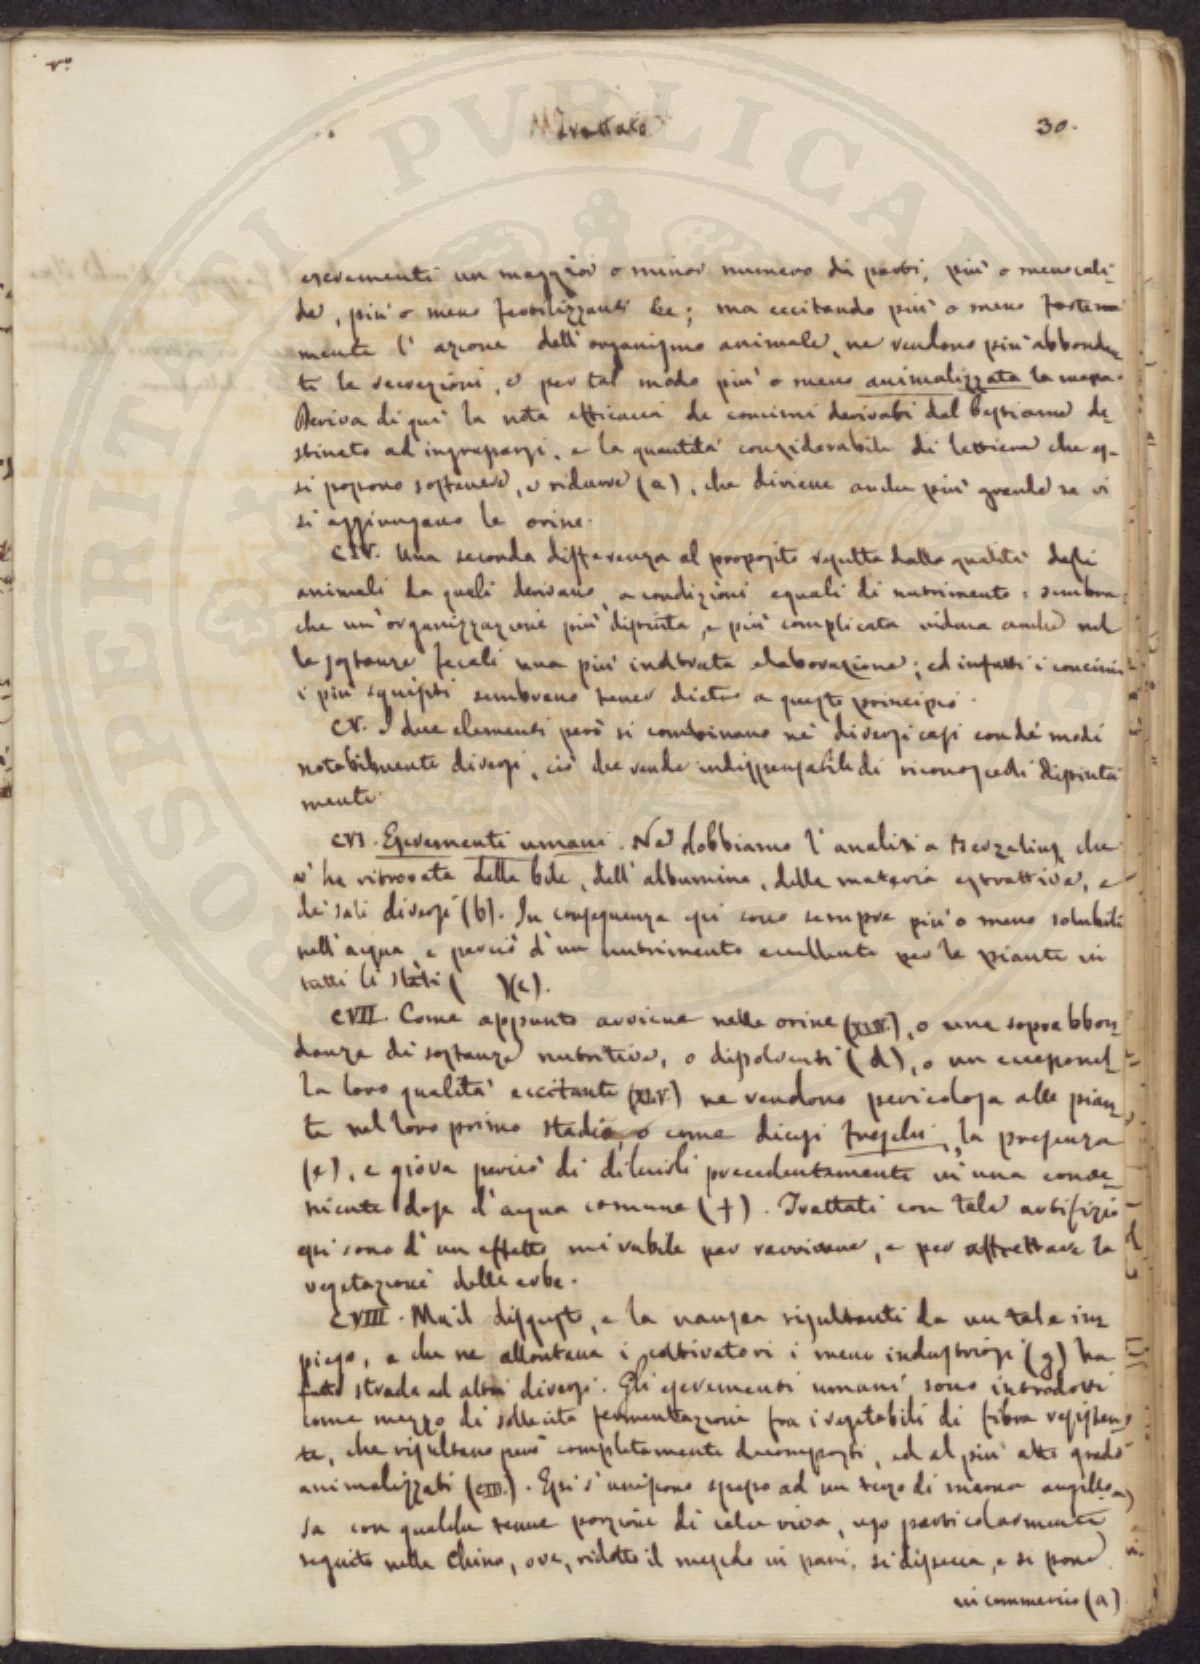 rº
Trattato
30.
escrementi un maggior o minor numero di parti, più o meno cali-
de, più o meno fertilizzanti &c; ma eccitando più o meno forte
mente l'azione dell'organismo animale, ne rendono più abbondan
ti le secrezioni, e per tal modo più o meno animalizzata la massa.
Deriva di qui la nota efficacia de concimi derivati dal bestiame de-
stinato ad ingrassarsi, e la quantità considerabile di lettiera che es-
si possono sostenere, e ridurre (a), che diviene anche più grande se vi
si aggiungano le orine.
CIV. Una seconda differenza al proposito risulta dalla qualità degli
animali da quali derivano, a condizioni eguali di nutrimento: sembra
che un'organizzazione più distinta, e più complicata induca anche nel
le sostanze fecali una più inoltrata elaborazione; ed infatti i concimi
i più squisiti sembrano tener dietro a questo principio.
CV. I due elementi però si combinano ne' diversi casi con dei modi
notabilmente diversi, ciò che rende indispensabile di riconoscerli distinta
mente.
CVI. Escrementi umani. Ne dobbiamo l'analisi a Berzelius, che
v'ha ritrovata della bile, dell'albumina, della materia estrattiva, e
de' sali diversi (b). In conseguenza essi sono sempre più o meno solubili
nell'acqua, e perciò d'un nutrimento eccellente per le piante in
tutti li stati ( )(c).
CVII. Come appunto avviene nelle orine (XLIV.), o una soprabbon-
danza di sostanze nutritive, o dissolventi (d), o un eccesso nel
la loro qualità eccitante (XLV.) ne rendono pericolosa alle pian-
te nel loro primo stadio, o come dicesi freschi, la presenza
(e), e giova perciò di diluirli precedentemente in una conve-
niente dose d'acqua comune (f). Trattati con tale artifizio
essi sono d'un effetto mirabile per ravvivare, e per affrettare la
vegetazione delle erbe.
CVIII. Ma il disgusto, e la nausea risultanti da un tale im
piego, e che ne allontana i coltivatori i meno industriosi (g) ha
fatto strada ad altri diversi. Gli escrementi umani sono introdotti
come mezzo di sollecita fermentazione fra i vegetabili di fibra resisten-
te, che risultano però completamente decomposti, ed al più alto grado
animalizzati (CIII.). Essi s'uniscono spesso ad un terzo di marna argillo-
sa con qualche tenue porzione di calce viva, uso particolarmente
seguito nella China, ove, ridotto il miscuglio in pani, si dissecca, e si pone
in commercio (a)